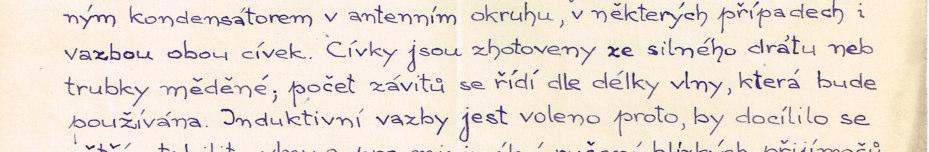 ným kondensátorem v antenním okruhu, v některých případech i
vazbou obou cívek. Cívky jsou zhotoveny ze silného drátu neb
trubky měděné; počet závitů se řídí dle délky vlny, která bude
používána. Induktivní vazby jest voleno proto, by docílilo se